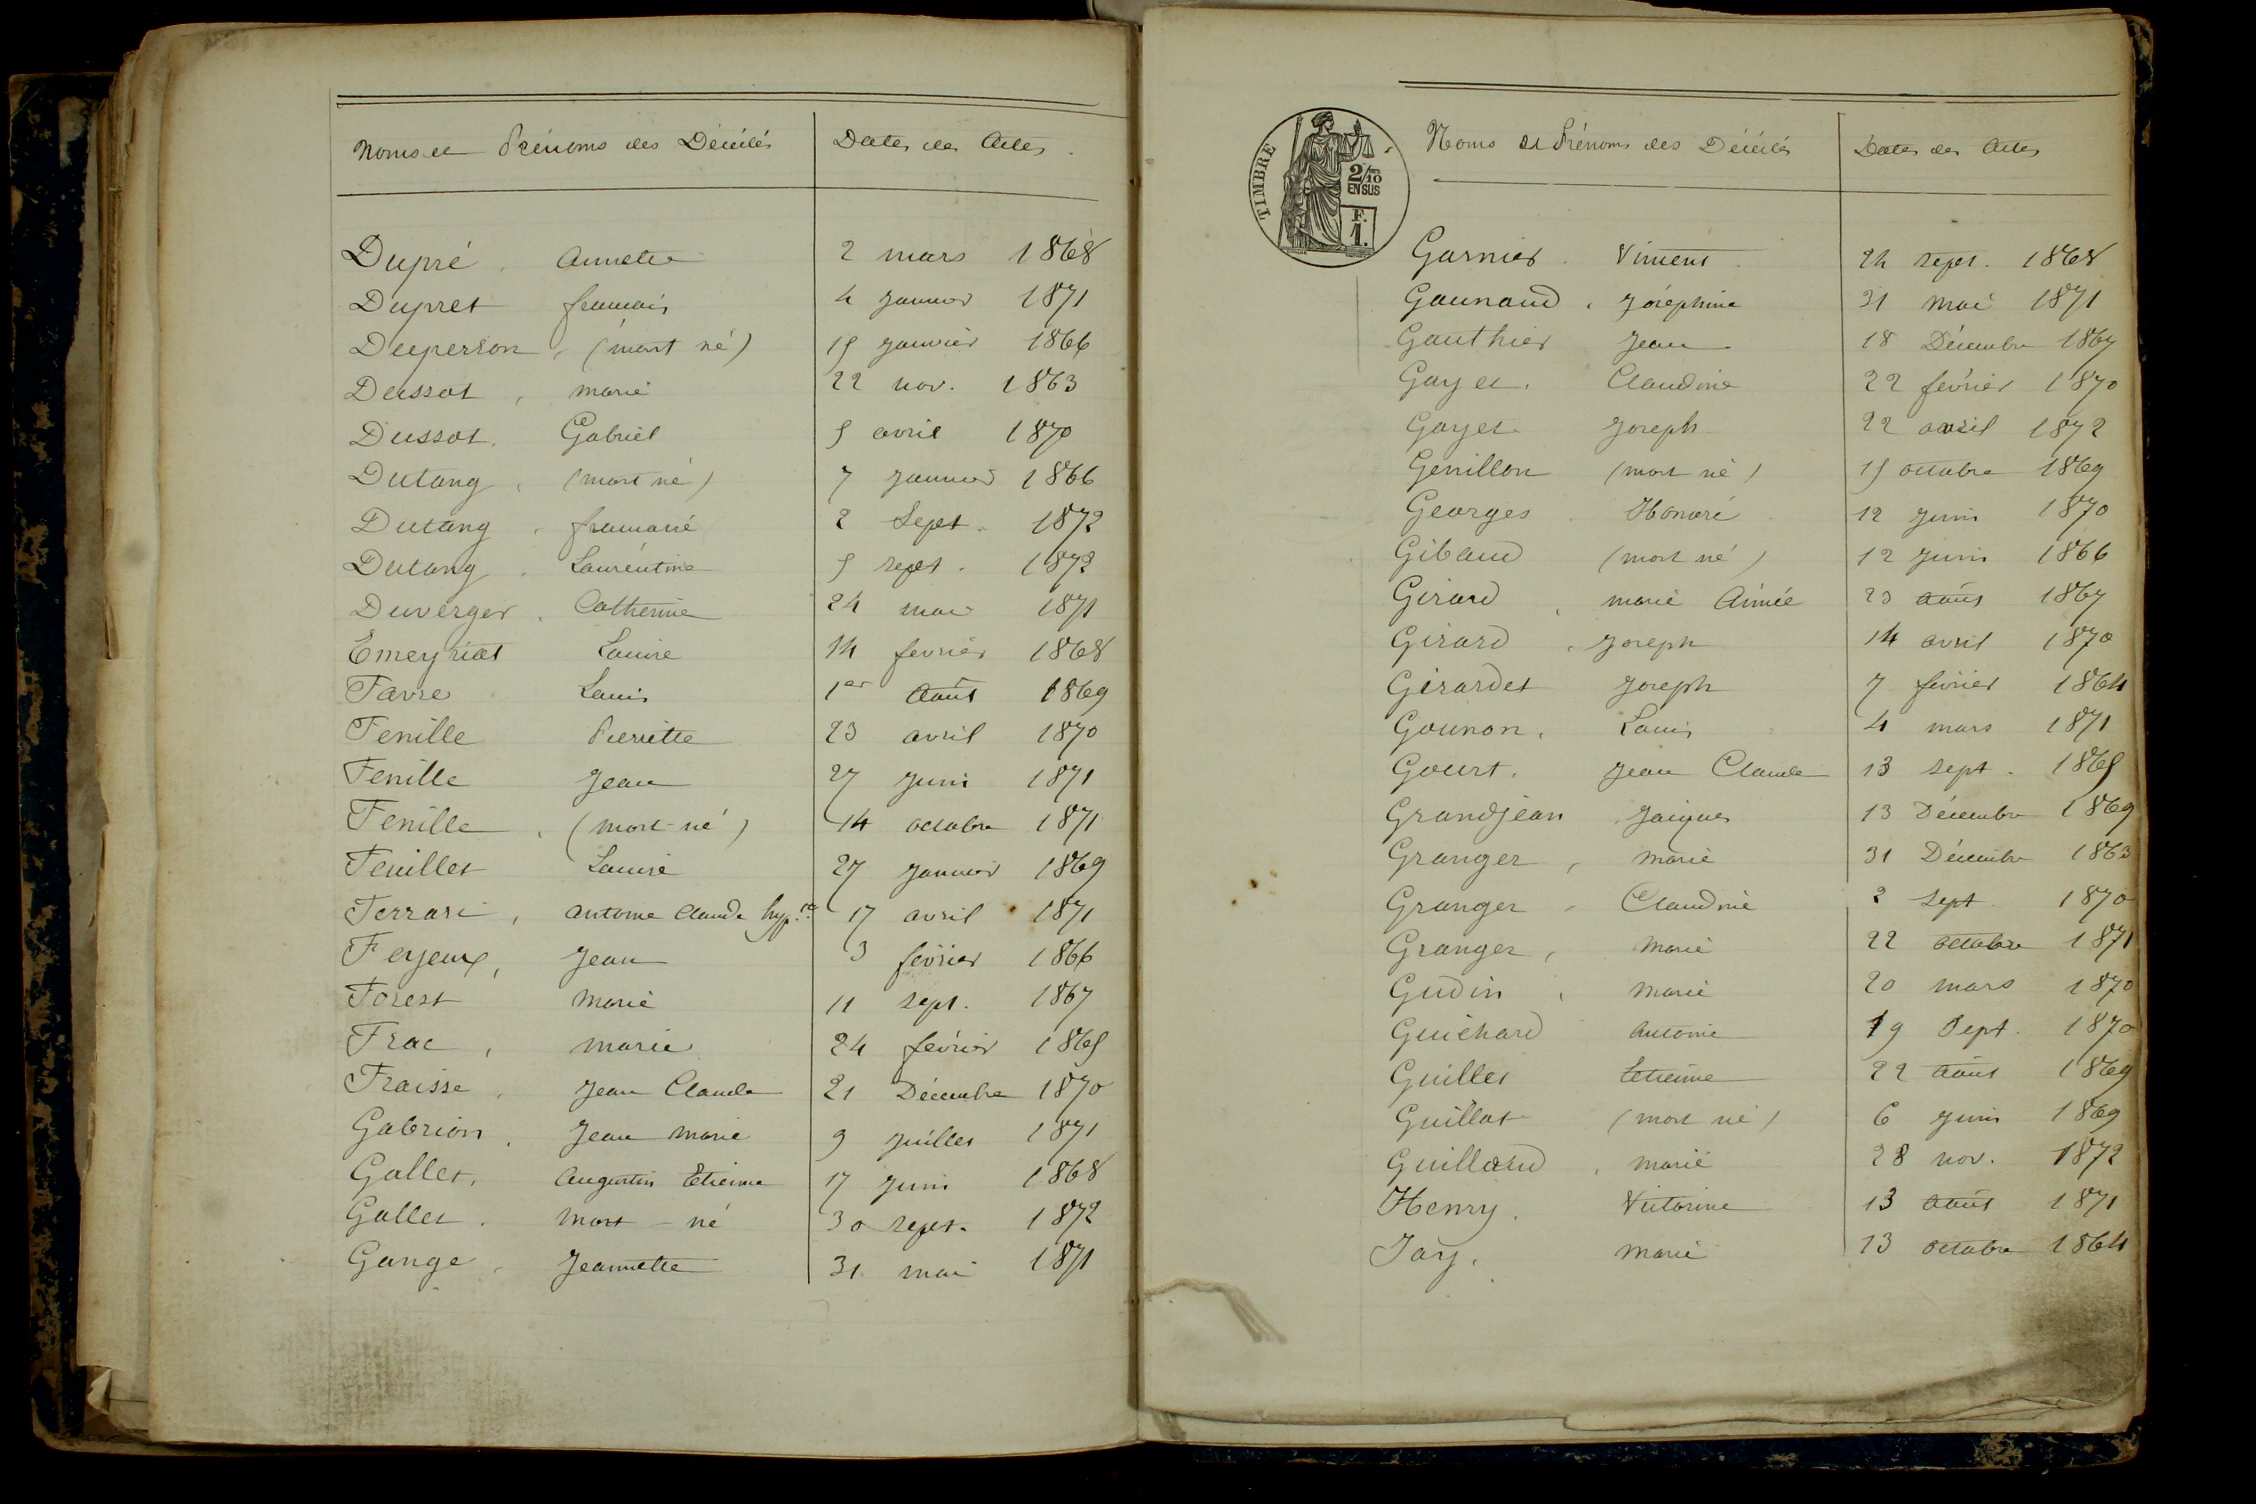 Noms et Prénoms des Décédés Dates des Actes.
Dupré. Annette 2 mars 1868
Dupret français 4 janvier 1871
Duperson, (mort né) 15 janvier 1866
Dussot, marie 22 nov. 1863
Dussot. Gabriel 5 avril 1870
Dutang, (mort né) 7 janvier 1866
Dutang. 2 Sept. 1872
Dutang. Laurentine 5 sept. 1872
Duverger. Catherine 24 mai 1871
Emeyriat Louise 14 fevrier 1868
Favre Louis 1er Août 1869
Fenille Pierrette 23 avril 1870
Fenille Jean 27 juin 1871
Fenille, (mort-né) 14 octobre 1871
Feuillet Louise 27 janvier 1869
Ferrari, antoine Claude hyp.te 17 avril 1871
Feyeux, Jean 3 février 1866
Forest Marie 11 sept. 1867
Frac, marie 24 février 1865
Fraisse, Jean Claude 21 Décembre 1870
Gabrion, Jean Marie 9 juillet 1871
Gallet, Augustin Etienne 17 juin 1868
Gallet. Mort-né 30 sept. 1872
Gange, Jeannette 31 mai 1871
TIMBRE
2/10
EN SUS
F.
1.
Noms et Prénoms des Décédés Dates des Actes
Garnier. Vincent. 24 sept. 1868
Gaunaud, Joséphine 31 Mai 1871
Gauthier Jean 18 Décembre 1867
Gayet. Claudine 22 février 1870
Gayet Joseph 22 avril 1872
Genillon (mort né) 15 octobre 1869
Georges. Honoré 12 juin 1870
Gibaud (mort né) 12 juin 1866
Girard, marie Aimée 23 août 1867
Girard, Joseph 14 avril 1870
Girardet Joseph 7 février 1864
Gounon, Louis 4 mars 1871
Gourt. Jean Claude 13 sept. 1865
Grandjean Jacques 13 Décembre 1869
Granger, marie 31 Décembre 1863
Granger, Claudine 2 Sept. 1870
Granger, Marie 22 octobre 1871
Gudin, Marie 20 mars 1870
Guichard Antoine 19 Sept. 1870
Guillet Etienne 22 Août 1869
Guillot (mort né) 6 juin 1869
Guillard, Marie 28 nov. 1872
Henry. Victorine 13 août 1871
Jay. Marie 13 octobre 1864